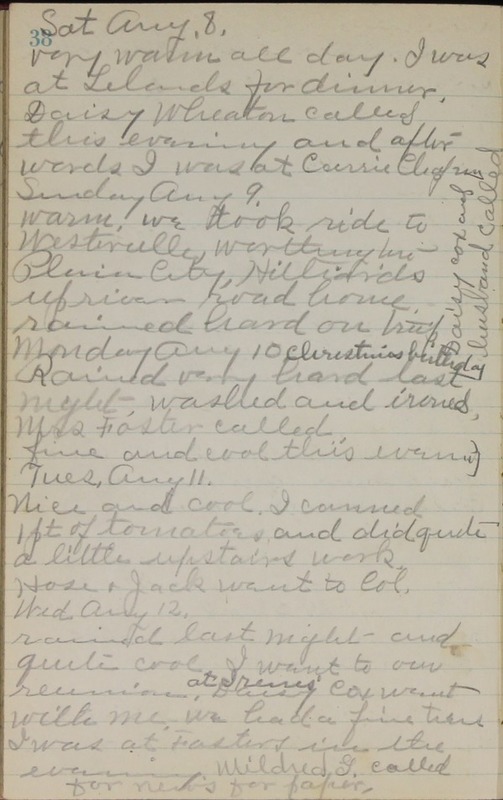 38
Sat Aug 8.
very warm all day. I was
at Lelands for dinner.
Daisy Wheaton called
this evening and after
words I was at Carrie
Sunday Aug 9.
warm, we took ride to
Westerville, Worthing
Plain City, Hilliards
up river road home
rained hard on trip
Monday Aug 10 Christinas birthday
Rained very hard last
night, washed and ironed,
Mrs Foster called
fine and cool this evening
Daisy Cox and
husband called
Tues, Aug 11.
Nice and cool. I canned
1 pt of tomatoes, and did quite
a little upstairs work.
Hose & Jack want to Col.
Wed Aug 12.
rained last night and
quite cool. I want to our
reunion, at Irenes Daisy Cox want
with me, we had a fine time
I was at Fosters in the
evening. Mildred G. called
for news for paper.